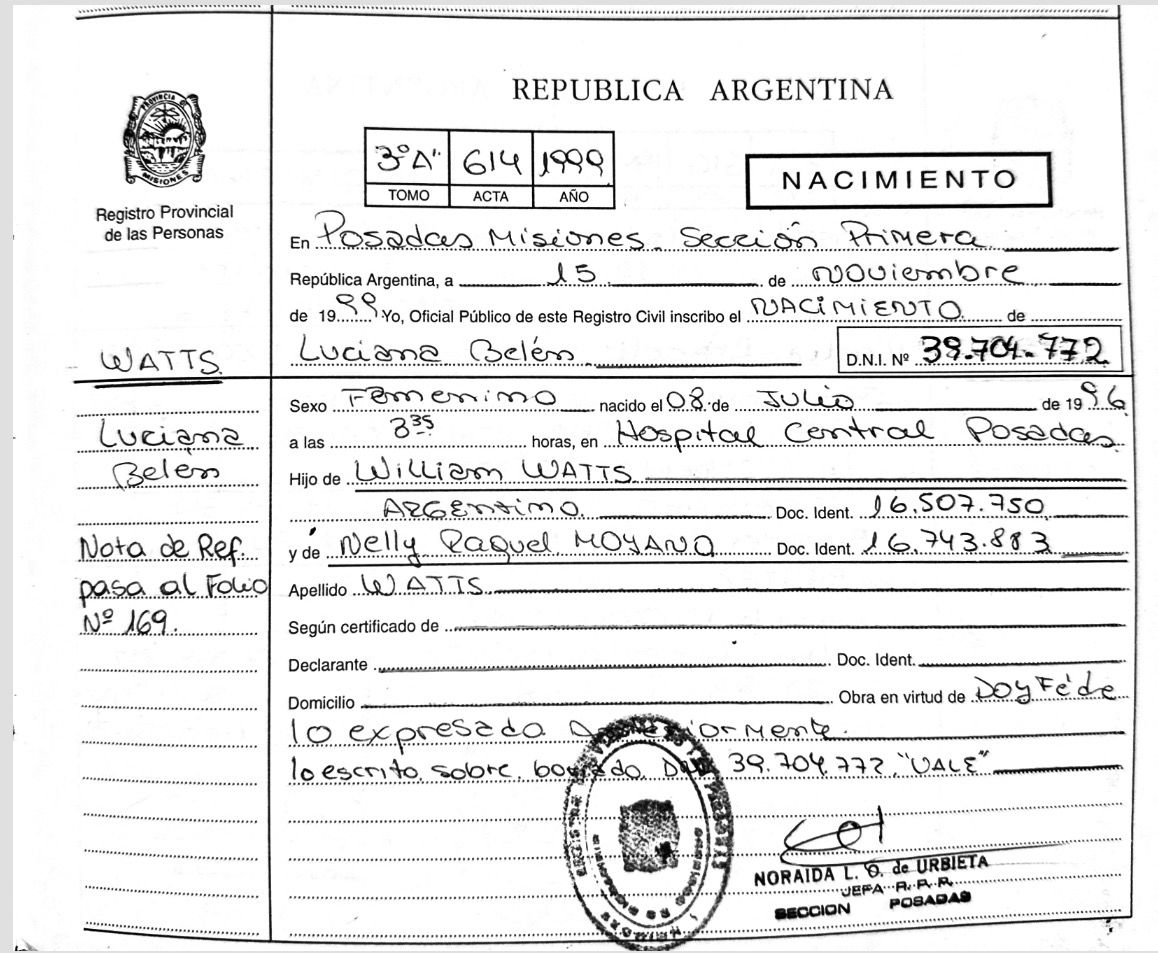 PROVINCIA DE
MISIONES
Registro Provincial
de las Personas
REPUBLICA ARGENTINA
3º"A" 614 1999
TOMO ACTA AÑO
NACIMIENTO
En Posadas Misiones. Sección Primera
República Argentina, a 15 de Noviembre
de 1999 Yo, Oficial Público de este Registro Civil inscribo el NACIMIENTO de
Luciana Belén D.N.I. Nº 39.704.772
WATTS
Luciana
Belén
Nota de Ref.
pasa al Folio
Nº 169.
Sexo Femenino nacido el 08 de Julio de 1996
a las 8 35 horas, en Hospital Central Posadas
Hijo de William WATTS
Argentino Doc. Ident. 16.507.750
y de Nelly Raquel MOYANO Doc. Ident. 16.743.883
Apellido WATTS
Según certificado de
Declarante Doc. Ident.
Domicilio Obra en virtud de Doy Fé de
lo expresado
lo escrito sobre borrado 39.704.772 "VALE"
NORAIDA L. O. de URBIETA
JEFA R. P. P.
SECCION POSADAS